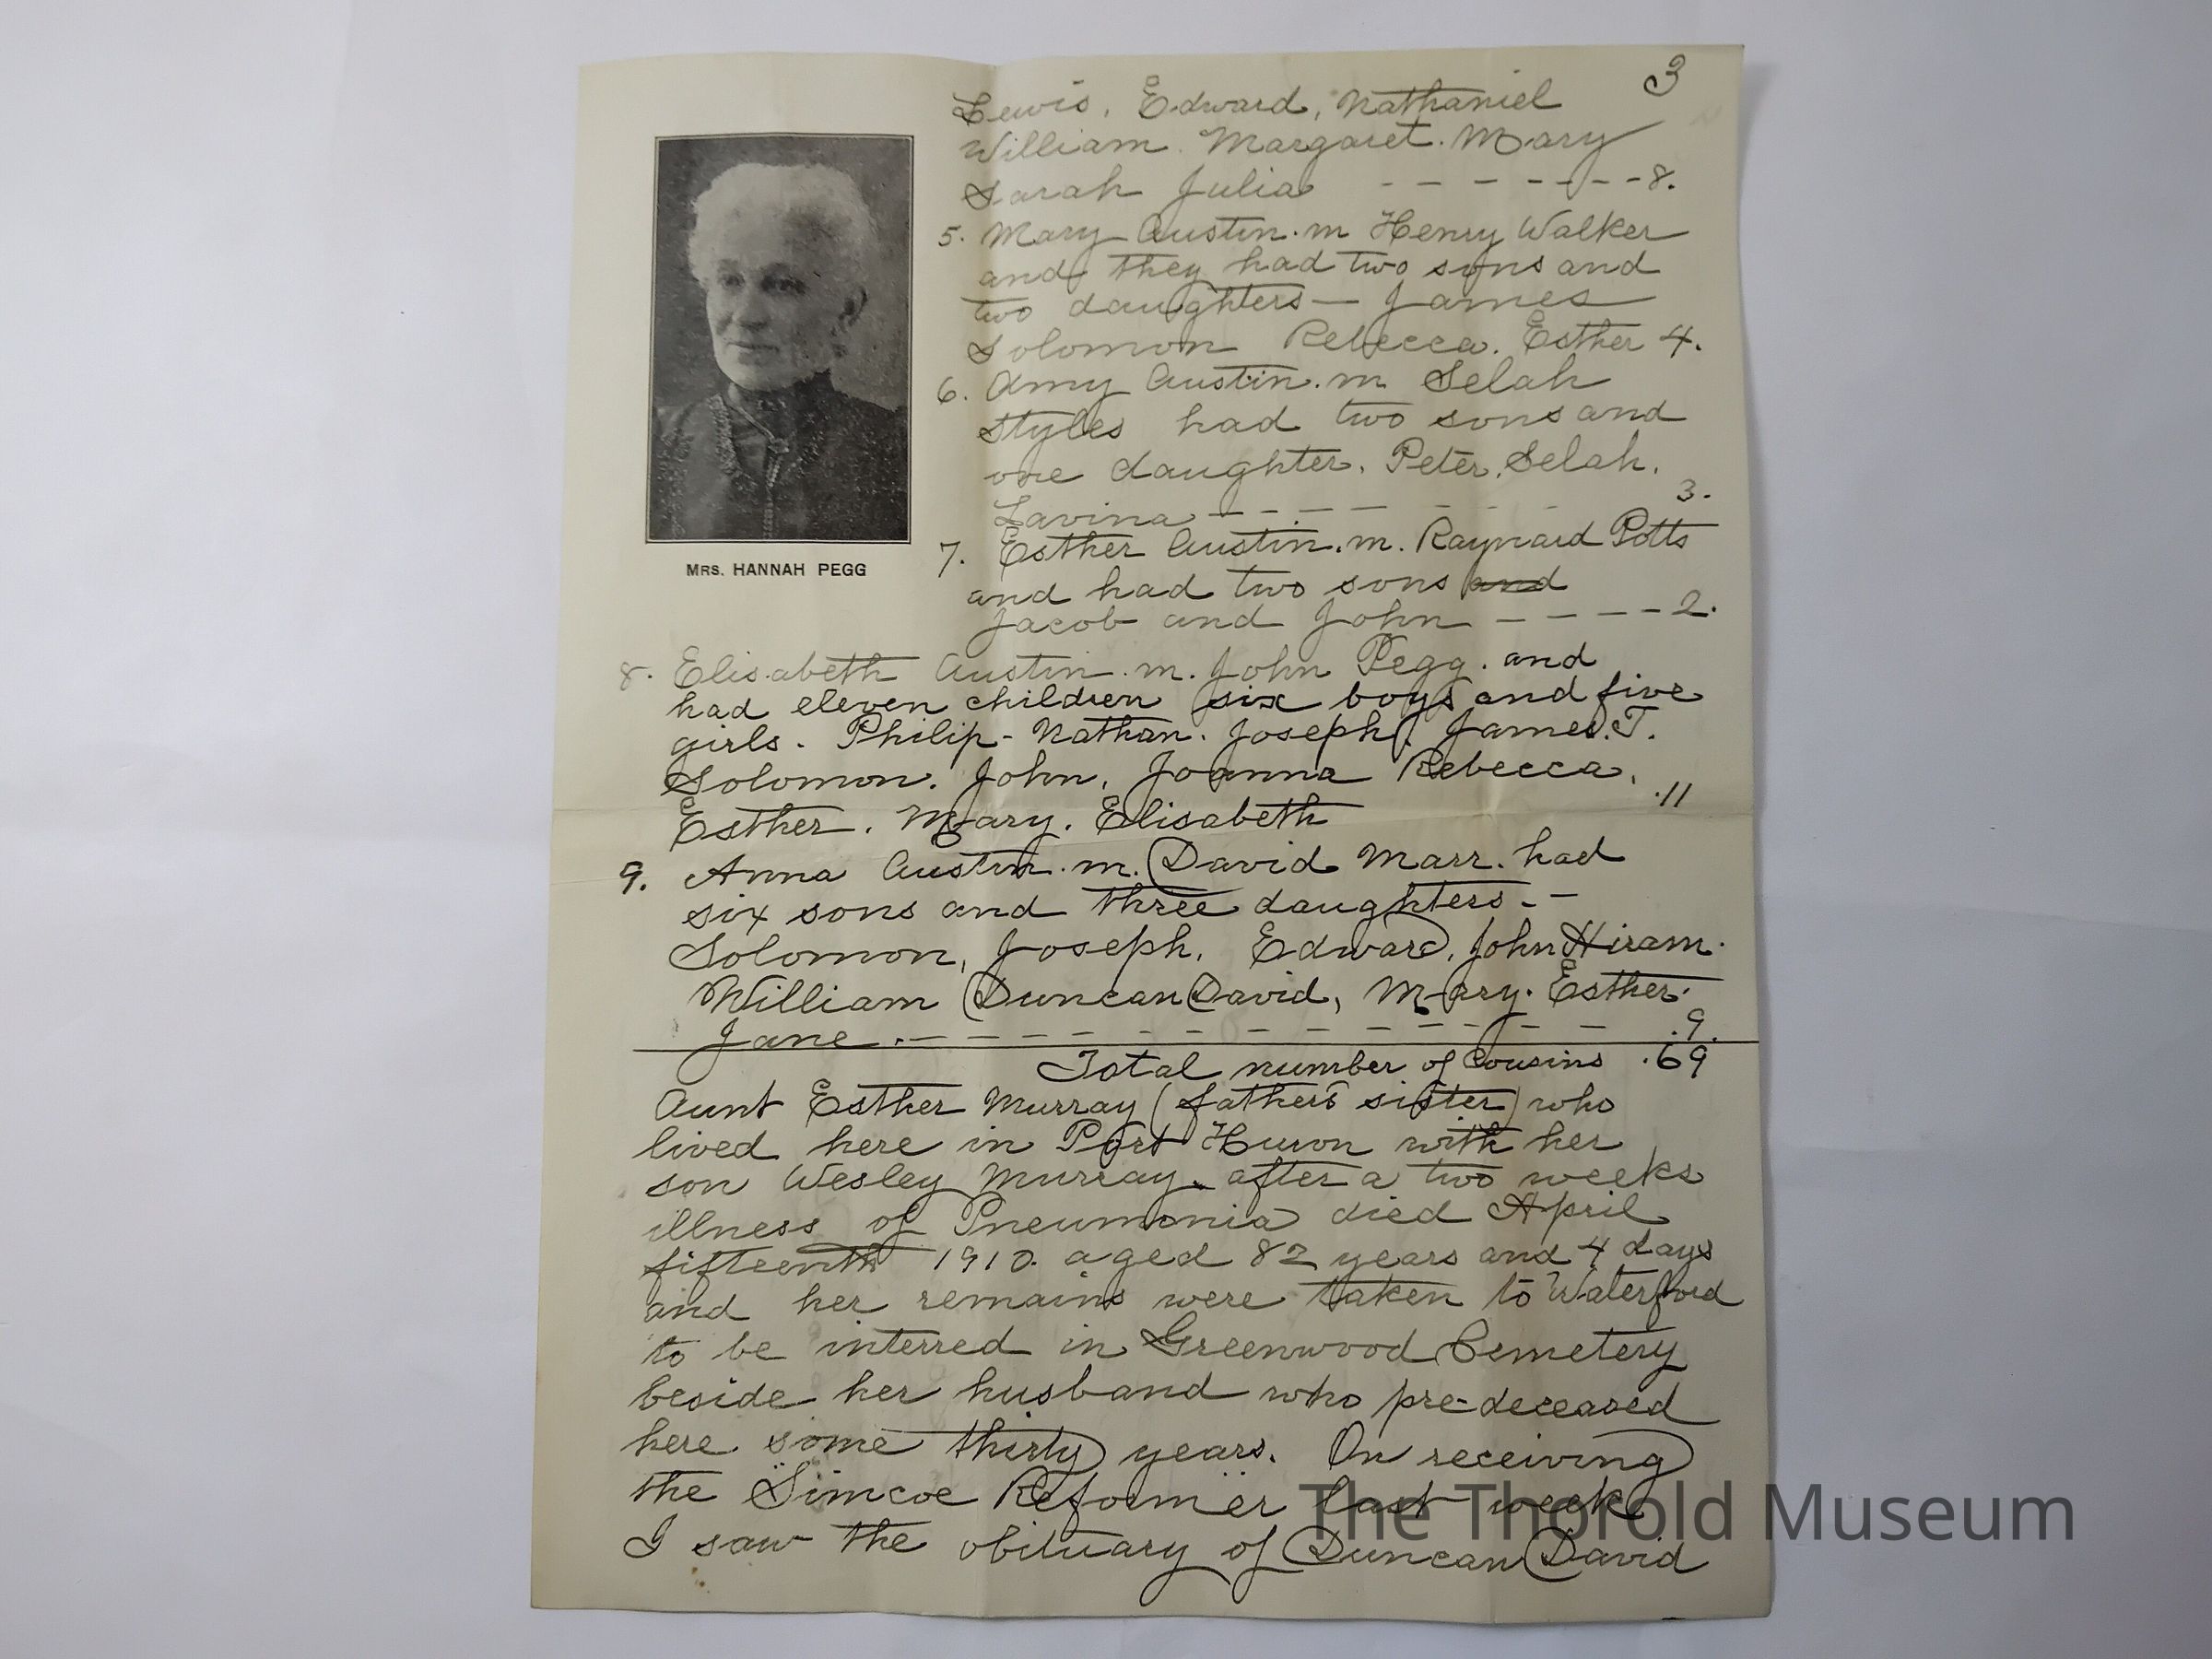 3
Lewis, Edward, Nathaniel
William. Margaret. Mary
Sarah Julia - - - - - - - 8.
5. Mary Austin. m Henry Walker
and they had two sons and
two daughters — James
Solomon Rebecca. Esther 4.
6. Amy Austin. m Selah
Styles had two sons and
one daughter. Peter. Selah.
Lavina - - - - - - - 3.
7. Esther Austin. m. Raynard Potts
and had two sons and
Jacob and John - - - - 2.
MRS. HANNAH PEGG
8. Elisabeth Austin. m. John Pegg. and
had eleven children six boys and five
girls. Philip - Nathan. Joseph. James. T.
Solomon. John, Joanna Rebecca.
Esther. Mary. Elisabeth .11
9. Anna Austin. m. David Marr. had
six sons and three daughters - -
Solomon, Joseph, Edward, John Hiram.
William Duncan David, Mary. Esther.
Jane. - - - - - - - - - - - - .9.
Total number of Cousins .69
Aunt Esther Murray (father's sister) who
lived here in Port Huron with her
son Wesley Murray. after a two weeks
illness of Pneumonia died April
fifteenth 1910. aged 82 years and 4 days
and her remains were taken to Waterford
to be interred in Greenwood Cemetery
beside her husband who pre-deceased
here some thirty years. On receiving
the "Simcoe Reformer" last week
I saw the obituary of Duncan David
The Thorold Museum